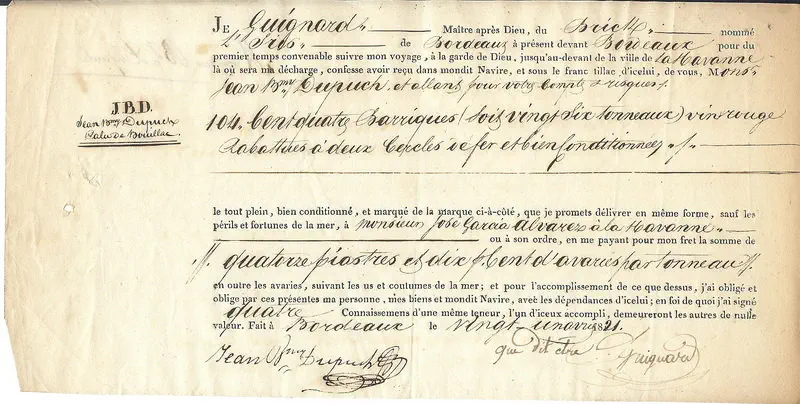 JE Guignard Maître après Dieu, du Brick nommé
L'Iris de Bordeaux à présent devant Bordeaux pour du
premier temps convenable suivre mon voyage, à la garde de Dieu, jusqu'au-devant de la ville de La Havanne
là où sera ma décharge, confesse avoir reçu dans mondit Navire, et sous le franc tillac d'icelui, de vous, Mons.
Jean Bmy Dupuch, et allant pour votre Compte & risques
J.B.D.
Jean Bmy Dupuch
Palu de Bouillac
104. Cent quatre Barriques (soit vingt six tonneaux) vin rouge
Rabattues à deux Cercles de fer et bien Conditionnées
le tout plein, bien conditionné, et marqué de la marque ci-à-côté, que je promets délivrer en même forme, sauf les
périls et fortunes de la mer, à monsieur José Garcia Alvarez à la Havanne
ou à son ordre, en me payant pour mon fret la somme de
quatorze piastres et dix p. Cent d'avaries par tonneau
en outre les avaries, suivant les us et coutumes de la mer; et pour l'accomplissement de ce que dessus, j'ai obligé et
oblige par ces présentes ma personne, mes biens et mondit Navire, avec les dépendances d'icelui; en foi de quoi j'ai signé
quatre Connaissemens d'une même teneur, l'un d'iceux accompli, demeureront les autres de nulle
valeur. Fait à Bordeaux le vingt-un 1821.
Jean Bmy Dupuch que dit être Guignard